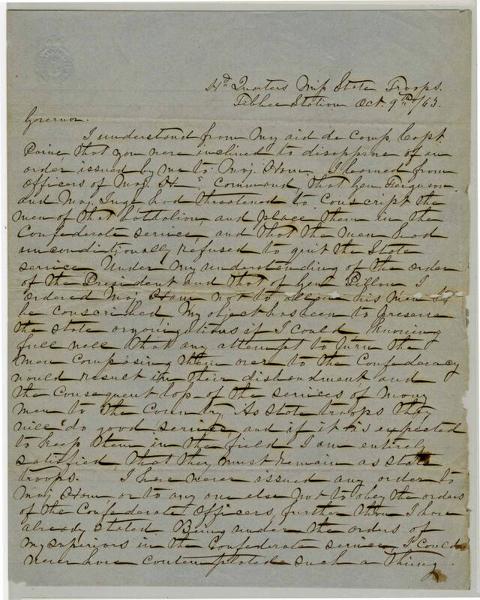 Hd Quarters Miss State Troops.
Tibbee Station Oct 9th /63.
Governor.
I understand from my aid de camp, Capt
Paine, that you were inclined to disapprove of an
order issued by me to Maj. Ham. I learned from
Officers of Maj. H's Command, that Gen. Ferguson
and Maj. Inge had threatened to Conscript the
men of that battalion, and place them in the
Confederate service and that the men had
unconditionally refused to quit the State
service. Under my understanding of the order
of the President and that of Genl Pillow I
ordered Maj. Ham not to allow his men to
be conscribed. My object has been to preserve
the state organizations if I could, knowing
full well that any attempt to turn the
men composing them over to the Confederacy
would result in their disbandment and
the consequent loss of the services of many
men to the Country. As state troops they
will do good service, and if it is expected
to keep them in the field I am entirely
satisfied, that they must remain as state
troops. I have never issued any order to
Maj. Ham or to any one else not to obey the orders
of the Confederate Officers further than I have
already stated. Being under the orders of
my superiors in the Confederate service, I could
never have contemplated such a thing.